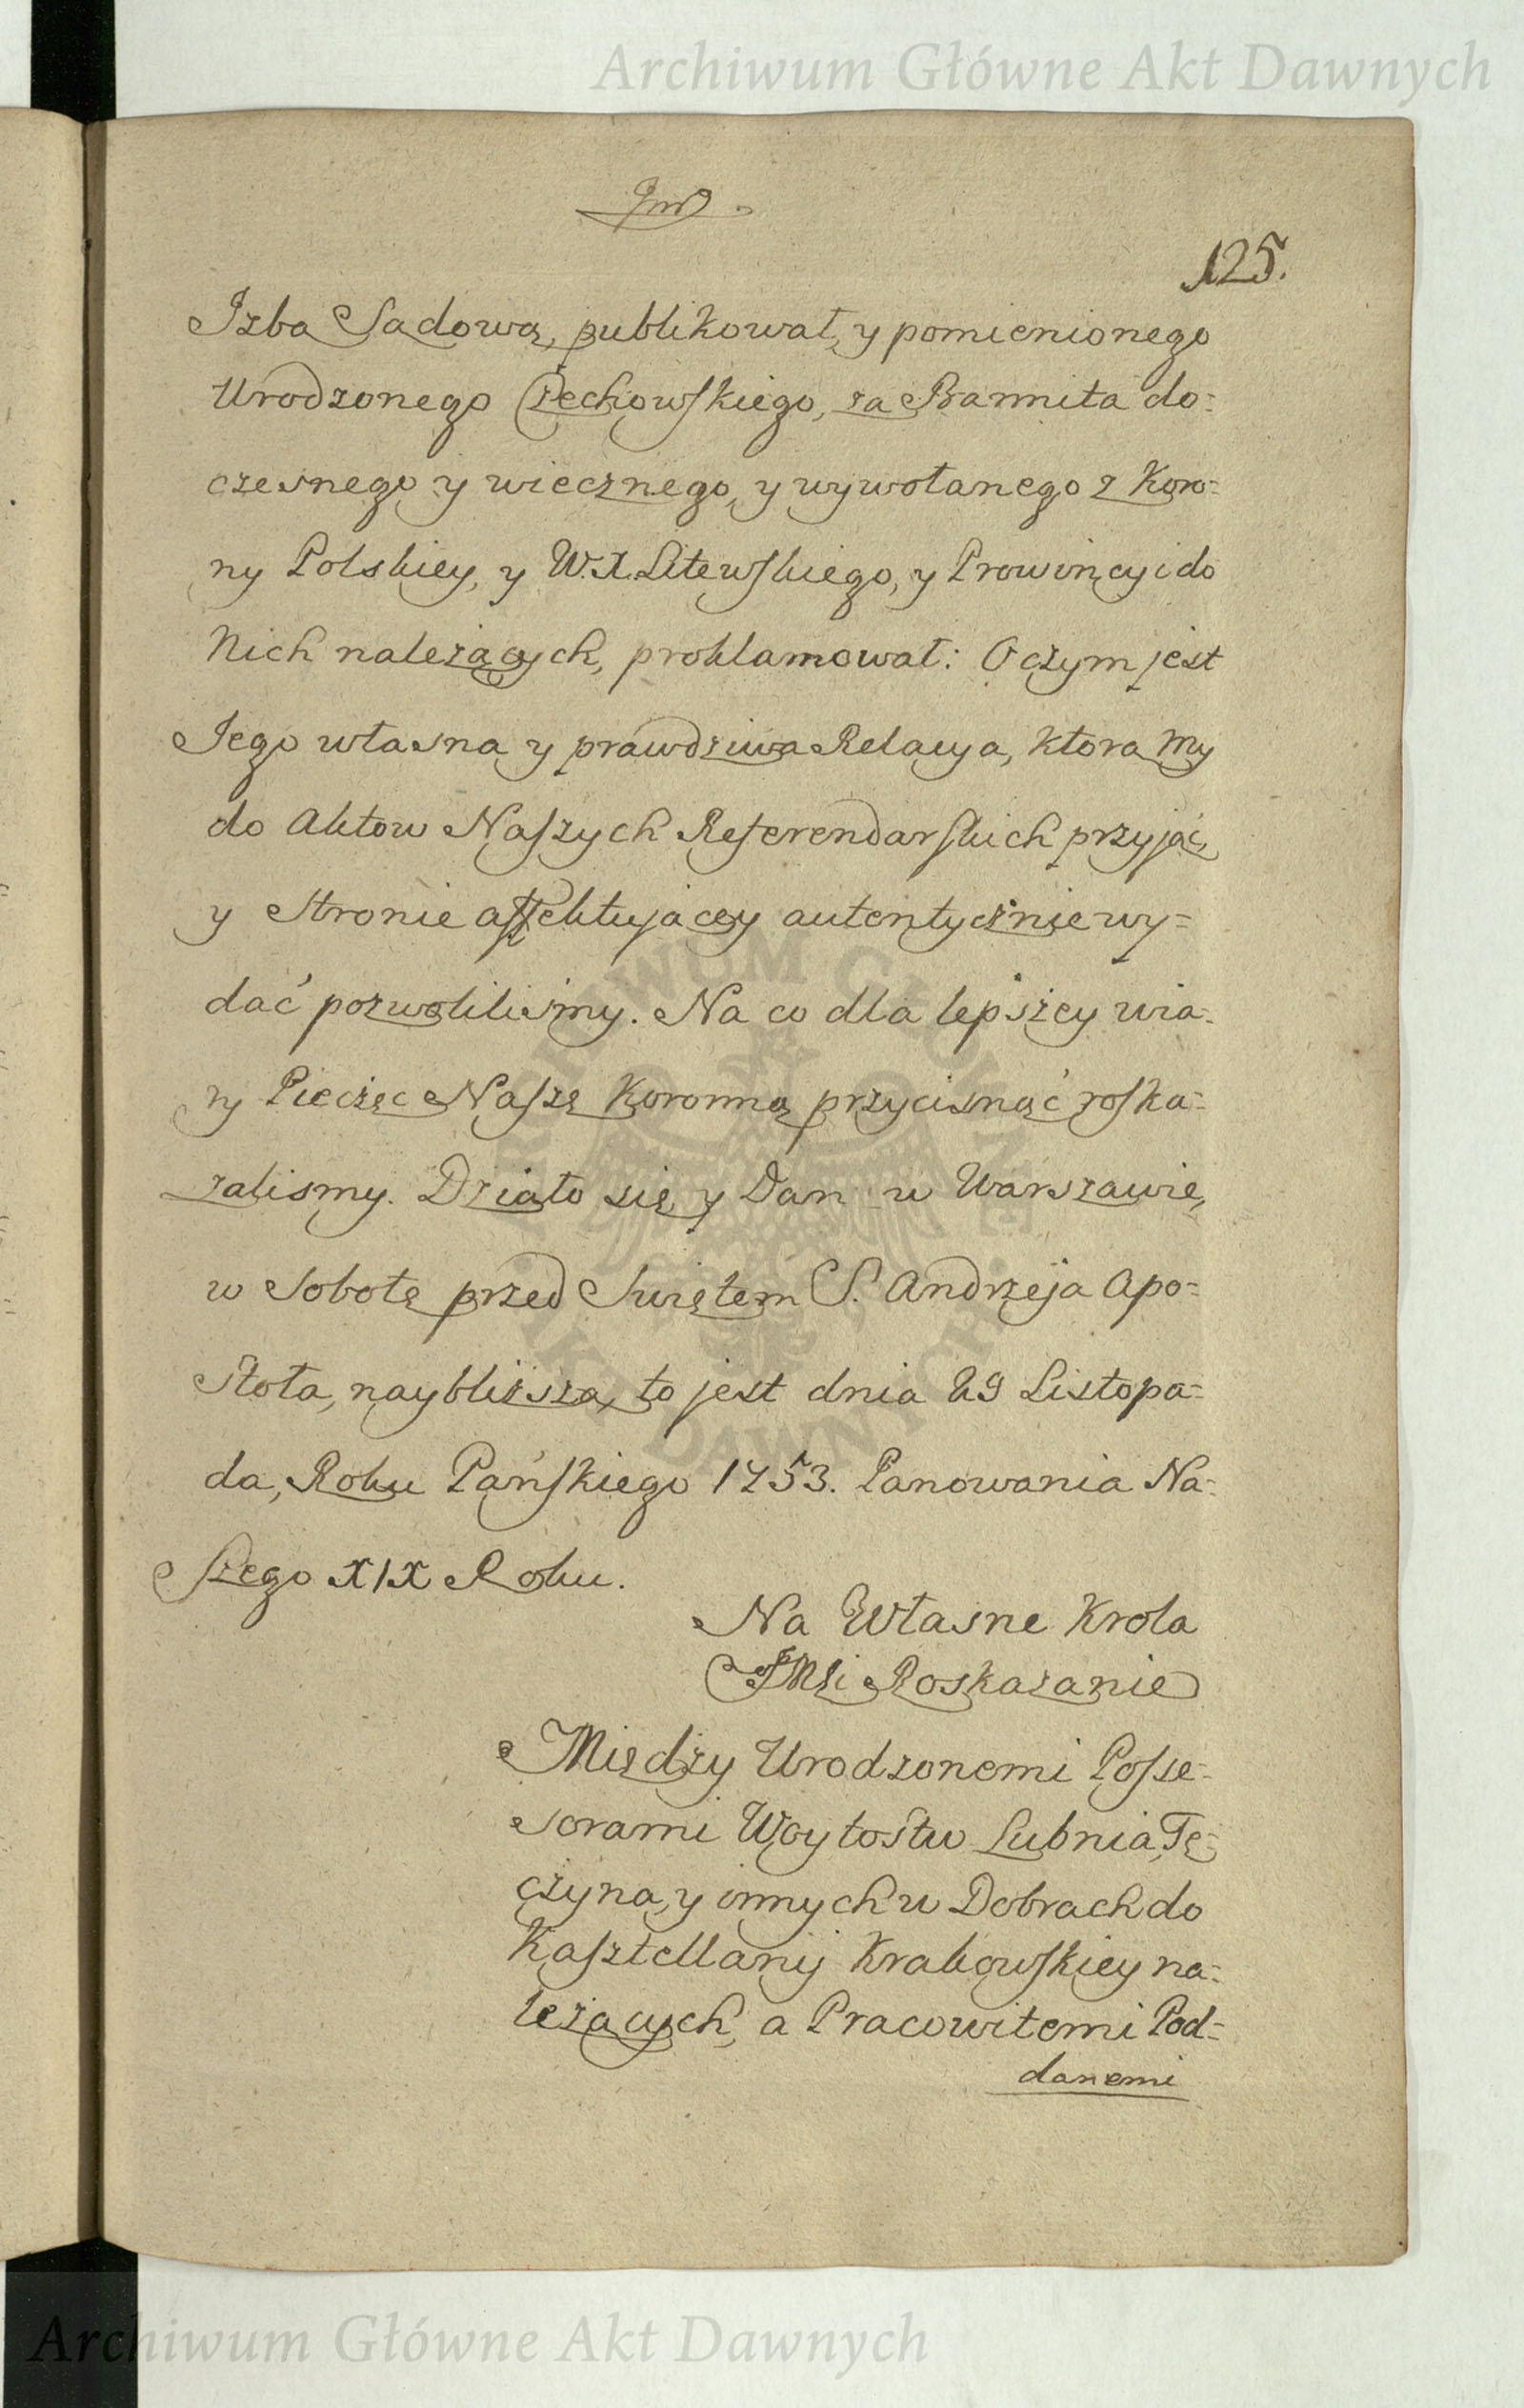 Archiwum Główne Akt Dawnych
125.
Izba Sadową, publikował, y pomienionego
Urodzonego Czechowskiego, za Bannita do=
czesnego y wiecznego, y wywołanego z Koro=
ny Polskiey, y W.X. Litewskiego, y Prowincyi do
Nich należących, proklamował: O czym jest
Jego własna y prawdziwa Relacya, ktora My
do Aktow Naszych Referendarskich przyjąć,
y Stronie affektujacey autentycznie wy=
dać pozwolilismy. Na co dla lepszey wia=
ry Pieczęc Naszę Koronną przycisnąć roska=
zalismy. Działo się y Dan w Warszawie,
w Sobotę przed Swiętem S. Andrzeja Apo=
stoła, naybliższą, to jest dnia 29 Listopa=
da, Roku Pańskiego 1753. Panowania Na=
szego XIX Roku.
Na Własne Krola
JMsi Roskazanie
Między Urodzonemi Posse=
sorami Woytostw Lubnia, Tę=
czyna, y innych w Dobrach do
Kasztellanij Krakowskiey na=
leżących, a Pracowitemi Pod=
danemi
ARCHIWUM GŁÓWNE
AKT DAWNYCH
Archiwum Główne Akt Dawnych